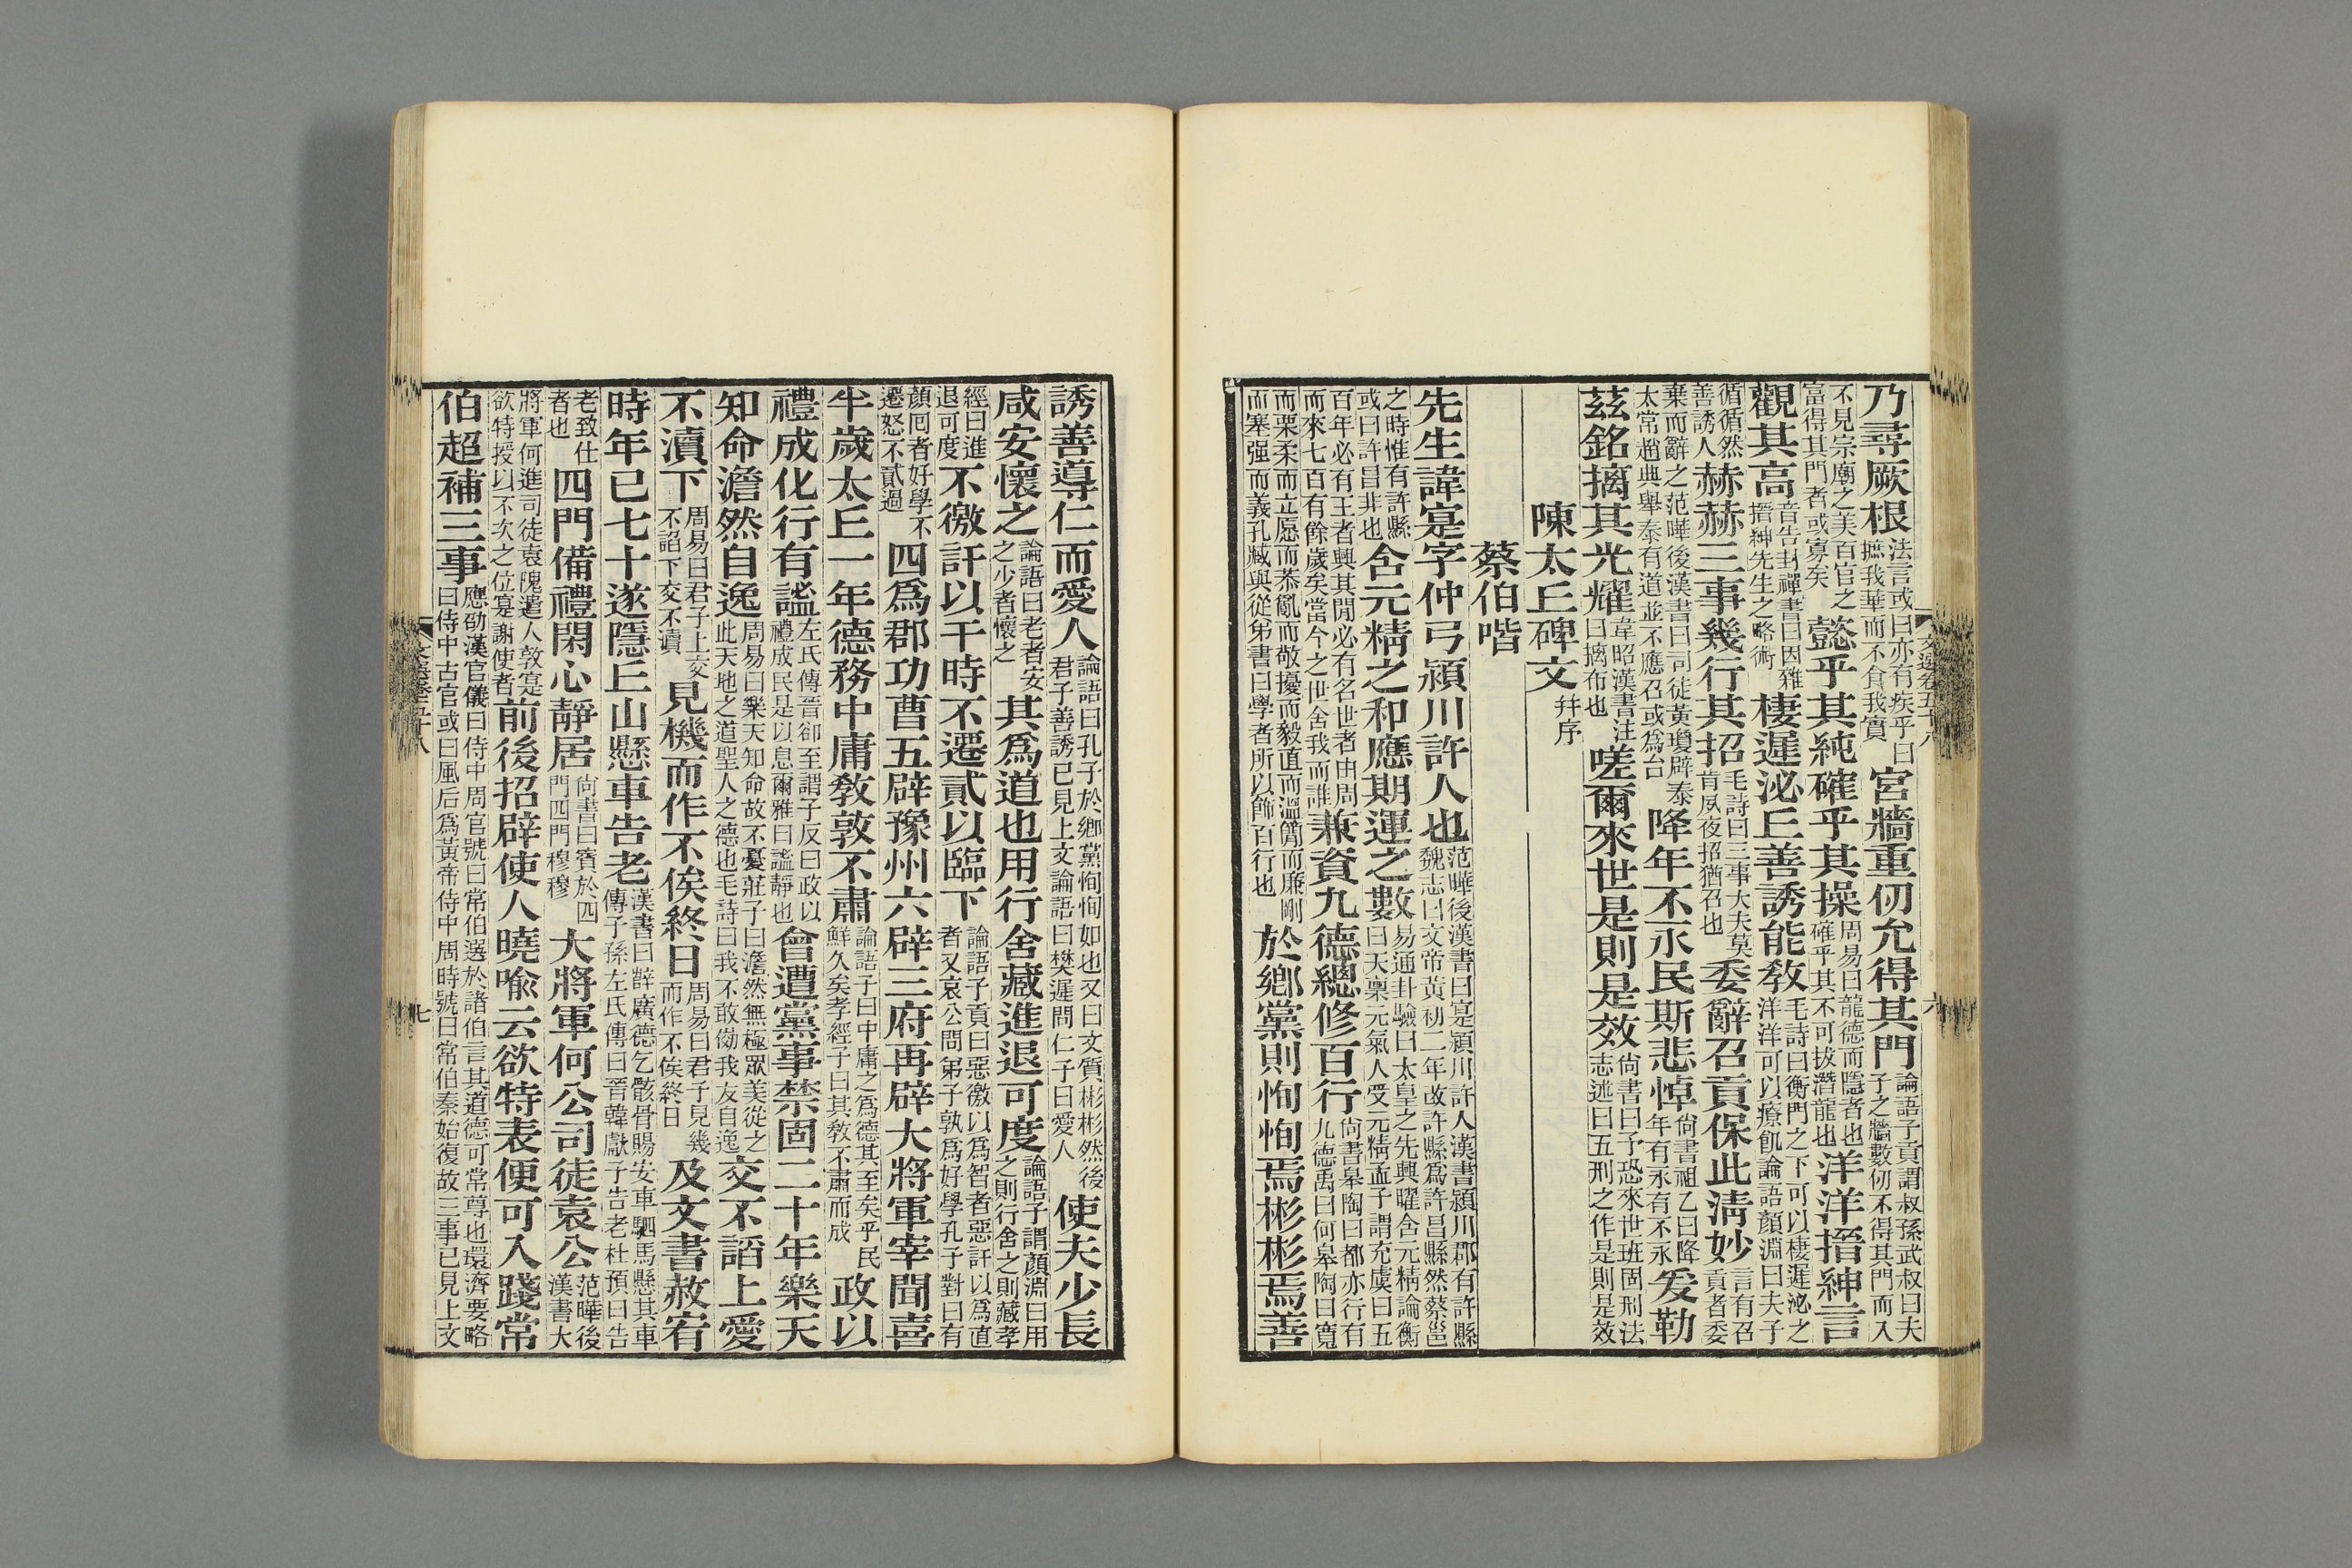 乃尋厥根法言或曰亦有疾乎曰摭我華而不食我實宮牆重仞允得其門論語子貢謂叔孫武叔曰夫子之牆數仞不得其門而入
不見宗廟之美百官之富得其門者或寡矣懿乎其純確乎其操周易曰龍德而隱者也確乎其不可拔潛龍也洋洋搢紳言
觀其高音告封禪書曰因雜搢紳先生之略術棲遲泌丘善誘能敎毛詩曰衡門之下可以棲遲泌之洋洋可以療飢論語顏淵曰夫子
循循然善誘人赫赫三事幾行其招毛詩曰三事大夫莫肯夙夜招猶召也委辭召貢保此淸妙言有召貢者委
棄而辭之范曄後漢書曰司徒黃瓊辟泰太常趙典舉泰有道並不應召或爲台降年不永民斯悲悼尙書祖乙曰降年有永有不永爰勒
茲銘摛其光耀韋昭漢書注曰摛布也嗟爾來世是則是效尙書曰予恐來世班固刑法志述曰五刑之作是則是效
陳太丘碑文幷序
蔡伯喈
先生諱寔字仲弓潁川許人也范曄後漢書曰寔潁川許人漢書潁川郡有許縣魏志曰文帝黃初二年改許縣爲許昌縣然蔡邕
之時惟有許縣或曰許昌非也含元精之和應期運之數易通卦驗曰太皇之先興曜含元精論衡曰天稟元氣人受元精孟子謂充虞曰五
百年必有王者興其閒必有名世者由周而來七百有餘歲矣當今之世舍我而誰兼資九德總修百行尙書皋陶曰都亦行有九德禹曰何皋陶曰寬
而栗柔而立愿而恭亂而敬擾而毅直而溫簡而廉剛而塞强而義孔臧與從弟書曰學者所以飾百行也於鄕黨則恂恂焉彬彬焉善
誘善導仁而愛人論語曰孔子於鄕黨恂恂如也又曰文質彬彬然後君子善誘已見上文論語曰樊遲問仁子曰愛人使夫少長
咸安懷之論語曰老者安之少者懷之其爲道也用行舍藏進退可度論語子謂顏淵曰用之則行舍之則藏孝
經曰進退可度不徼訐以干時不遷貳以臨下論語子貢曰惡徼以爲智者惡訐以爲直者又哀公問弟子孰爲好學孔子對曰有
顏囘者好學不遷怒不貳過四爲郡功曹五辟豫州六辟三府再辟大將軍宰聞喜
半歲太丘一年德務中庸敎敦不肅論語子曰中庸之爲德其至矣乎民鮮久矣孝經子曰其敎不肅而成政以
禮成化行有謐左氏傳晉郤至謂子反曰政以禮成民是以息爾雅曰謐靜也會遭黨事禁固二十年樂天
知命澹然自逸周易曰樂天知命故不憂莊子曰澹然無極衆美從之此天地之道聖人之德也毛詩曰我不敢傚我友自逸交不諂上愛
不瀆下周易曰君子上交不諂下交不瀆見機而作不俟終日周易曰君子見幾而作不俟終日及文書赦宥
時年已七十遂隱丘山懸車告老漢書曰薛廣德乞骸骨賜安車駟馬懸其車傳子孫左氏傳曰晉韓獻子告老杜預曰告
老致仕者也四門備禮閑心靜居尙書曰賓於四門四門穆穆大將軍何公司徒袁公范曄後漢書大
將軍何進司徒袁隗遣人敦寔欲特授以不次之位寔謝使者前後招辟使人曉喩云欲特表便可入踐常
伯超補三事應劭漢官儀曰侍中周官號曰常伯選於諸伯言其道德可常尊也環濟要略曰侍中古官或曰風后爲黃帝侍中周時號曰常伯秦始復故三事已見上文
文選卷五十八
六
文選卷五十八
七